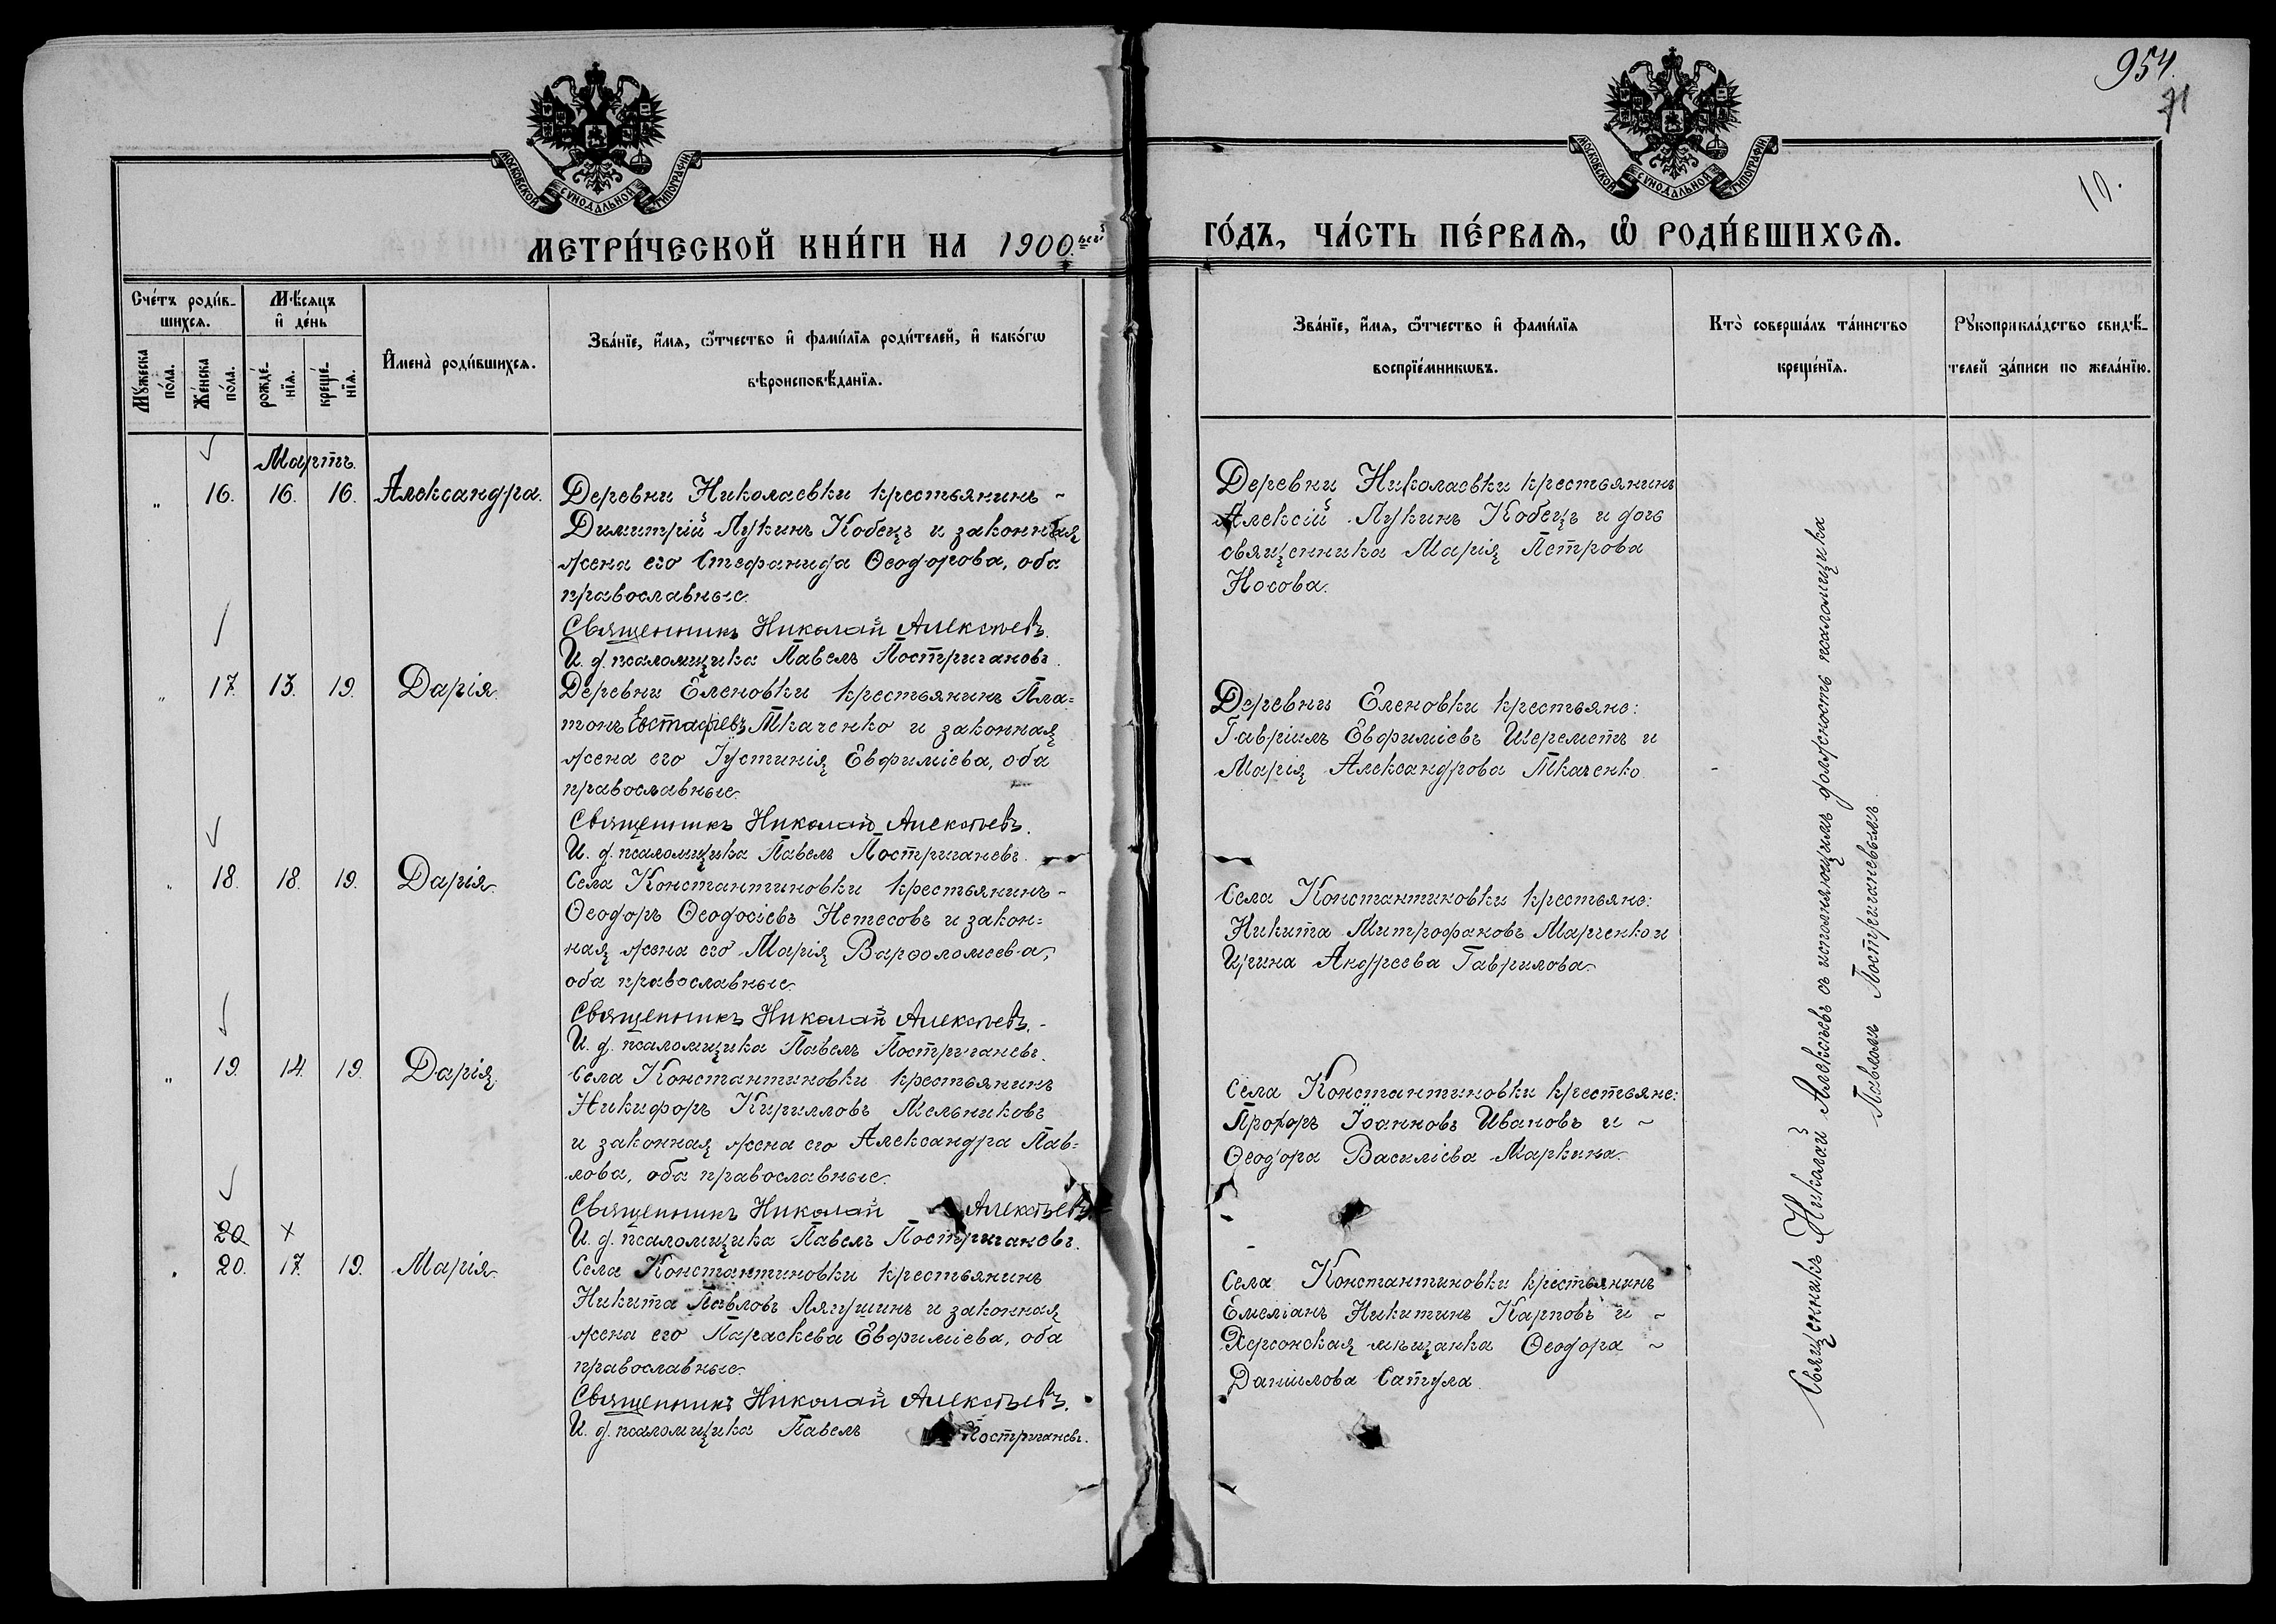 954.
71
10.
МОСКОВСКОЙ СѴНОДАЛЬНОЙ ТИПОГРАФІИ
МОСКОВСКОЙ СѴНОДАЛЬНОЙ ТИПОГРАФІИ
МЕТРИ́ЧЕСКОЙ КНИ́ГИ НА 1900.ый
ГО́ДЪ, ЧА́СТЬ ПЕ́РВАѦ, Ѽ РОДИ́ВШИХСѦ.
Сче́тъ роди́в-
шихсѧ.
Мꙋ́жеска
по́ла.
Же́нска
по́ла.
Мѣ́сѧцъ
и҆ де́нь
рожде́-
нїѧ.
креще́-
нїѧ.
И҆мена̀ роди́вшихсѧ.
Зва́нїе, и҆́мѧ, ѻ҆́тчество и҆ фами́лїѧ роди́телей, и҆ како́гѡ
вѣроисповѣ́данїѧ.
Зва́нїе, и҆́мѧ, ѻ҆́тчество и҆ фами́лїѧ
воспрїе́мникѡвъ.
Кто̀ соверша́лъ та́инство
креще́нїѧ.
Рꙋкоприкла́дство свидѣ́-
телей за́писи по жела́нїю.
Мартъ.
„ 16. 16. 16. Александра.
Деревни Николаевки крестьянинъ
Димитрій Лукинъ Кобецъ и законная
жена его Стефанида Ѳеодорова, оба
православные.
Священникъ Николай Алексѣевъ.
И. д. псаломщика Павелъ Постригановъ.
Деревни Николаевки крестьянинъ
Алексій Лукинъ Кобецъ и дочь
священника Марія Петрова
Носова.
„ 17. 13. 19. Дарія.
Деревни Еленовки крестьянинъ Пла=
тонъ Евстафіевъ Ткаченко и законная
жена его Іустинія Евфиміева, оба
православные.
Священникъ Николай Алексѣевъ.
И. д. псаломщика Павелъ Постригановъ.
Деревни Еленовки крестьяне:
Гавріилъ Евфиміевъ Шереметъ и
Марія Александрова Ткаченко.
„ 18. 18. 19. Дарія.
Села Константиновки крестьянинъ
Ѳеодоръ Ѳеодосіевъ Нетесовъ и закон=
ная жена его Марія Варѳоломеева,
оба православные.
Священникъ Николай Алексѣевъ.
И. д. псаломщика Павелъ Постригановъ.
Села Константиновки крестьяне:
Никита Митрофановъ Марченко и
Ирина Андреева Гаврилова.
„ 19. 14. 19. Дарія.
Села Константиновки крестьянинъ
Никифоръ Кирилловъ Мельниковъ
и законная жена его Александра Пав=
лова, оба православные.
Священникъ Николай Алексѣевъ.
И. д. псаломщика Павелъ Постригановъ.
Села Константиновки крестьяне:
Прохоръ Іоанновъ Ивановъ и
Ѳеодора Василіева Маркина.
20 х
„ 20. 17. 19. Марія.
Села Константиновки крестьянинъ
Никита Павловъ Лягушинъ и законная
жена его Параскева Евфиміева, оба
православные.
Священникъ Николай Алексѣевъ.
И. д. псаломщика Павелъ Постригановъ.
Села Константиновки крестьянинъ
Емеліанъ Никитинъ Карповъ и
Херсонская мѣщанка Ѳеодора
Данилова Сатула.
Священникъ Николай Алексѣевъ съ исполняющимъ должность псаломщика
Павломъ Постригановымъ.